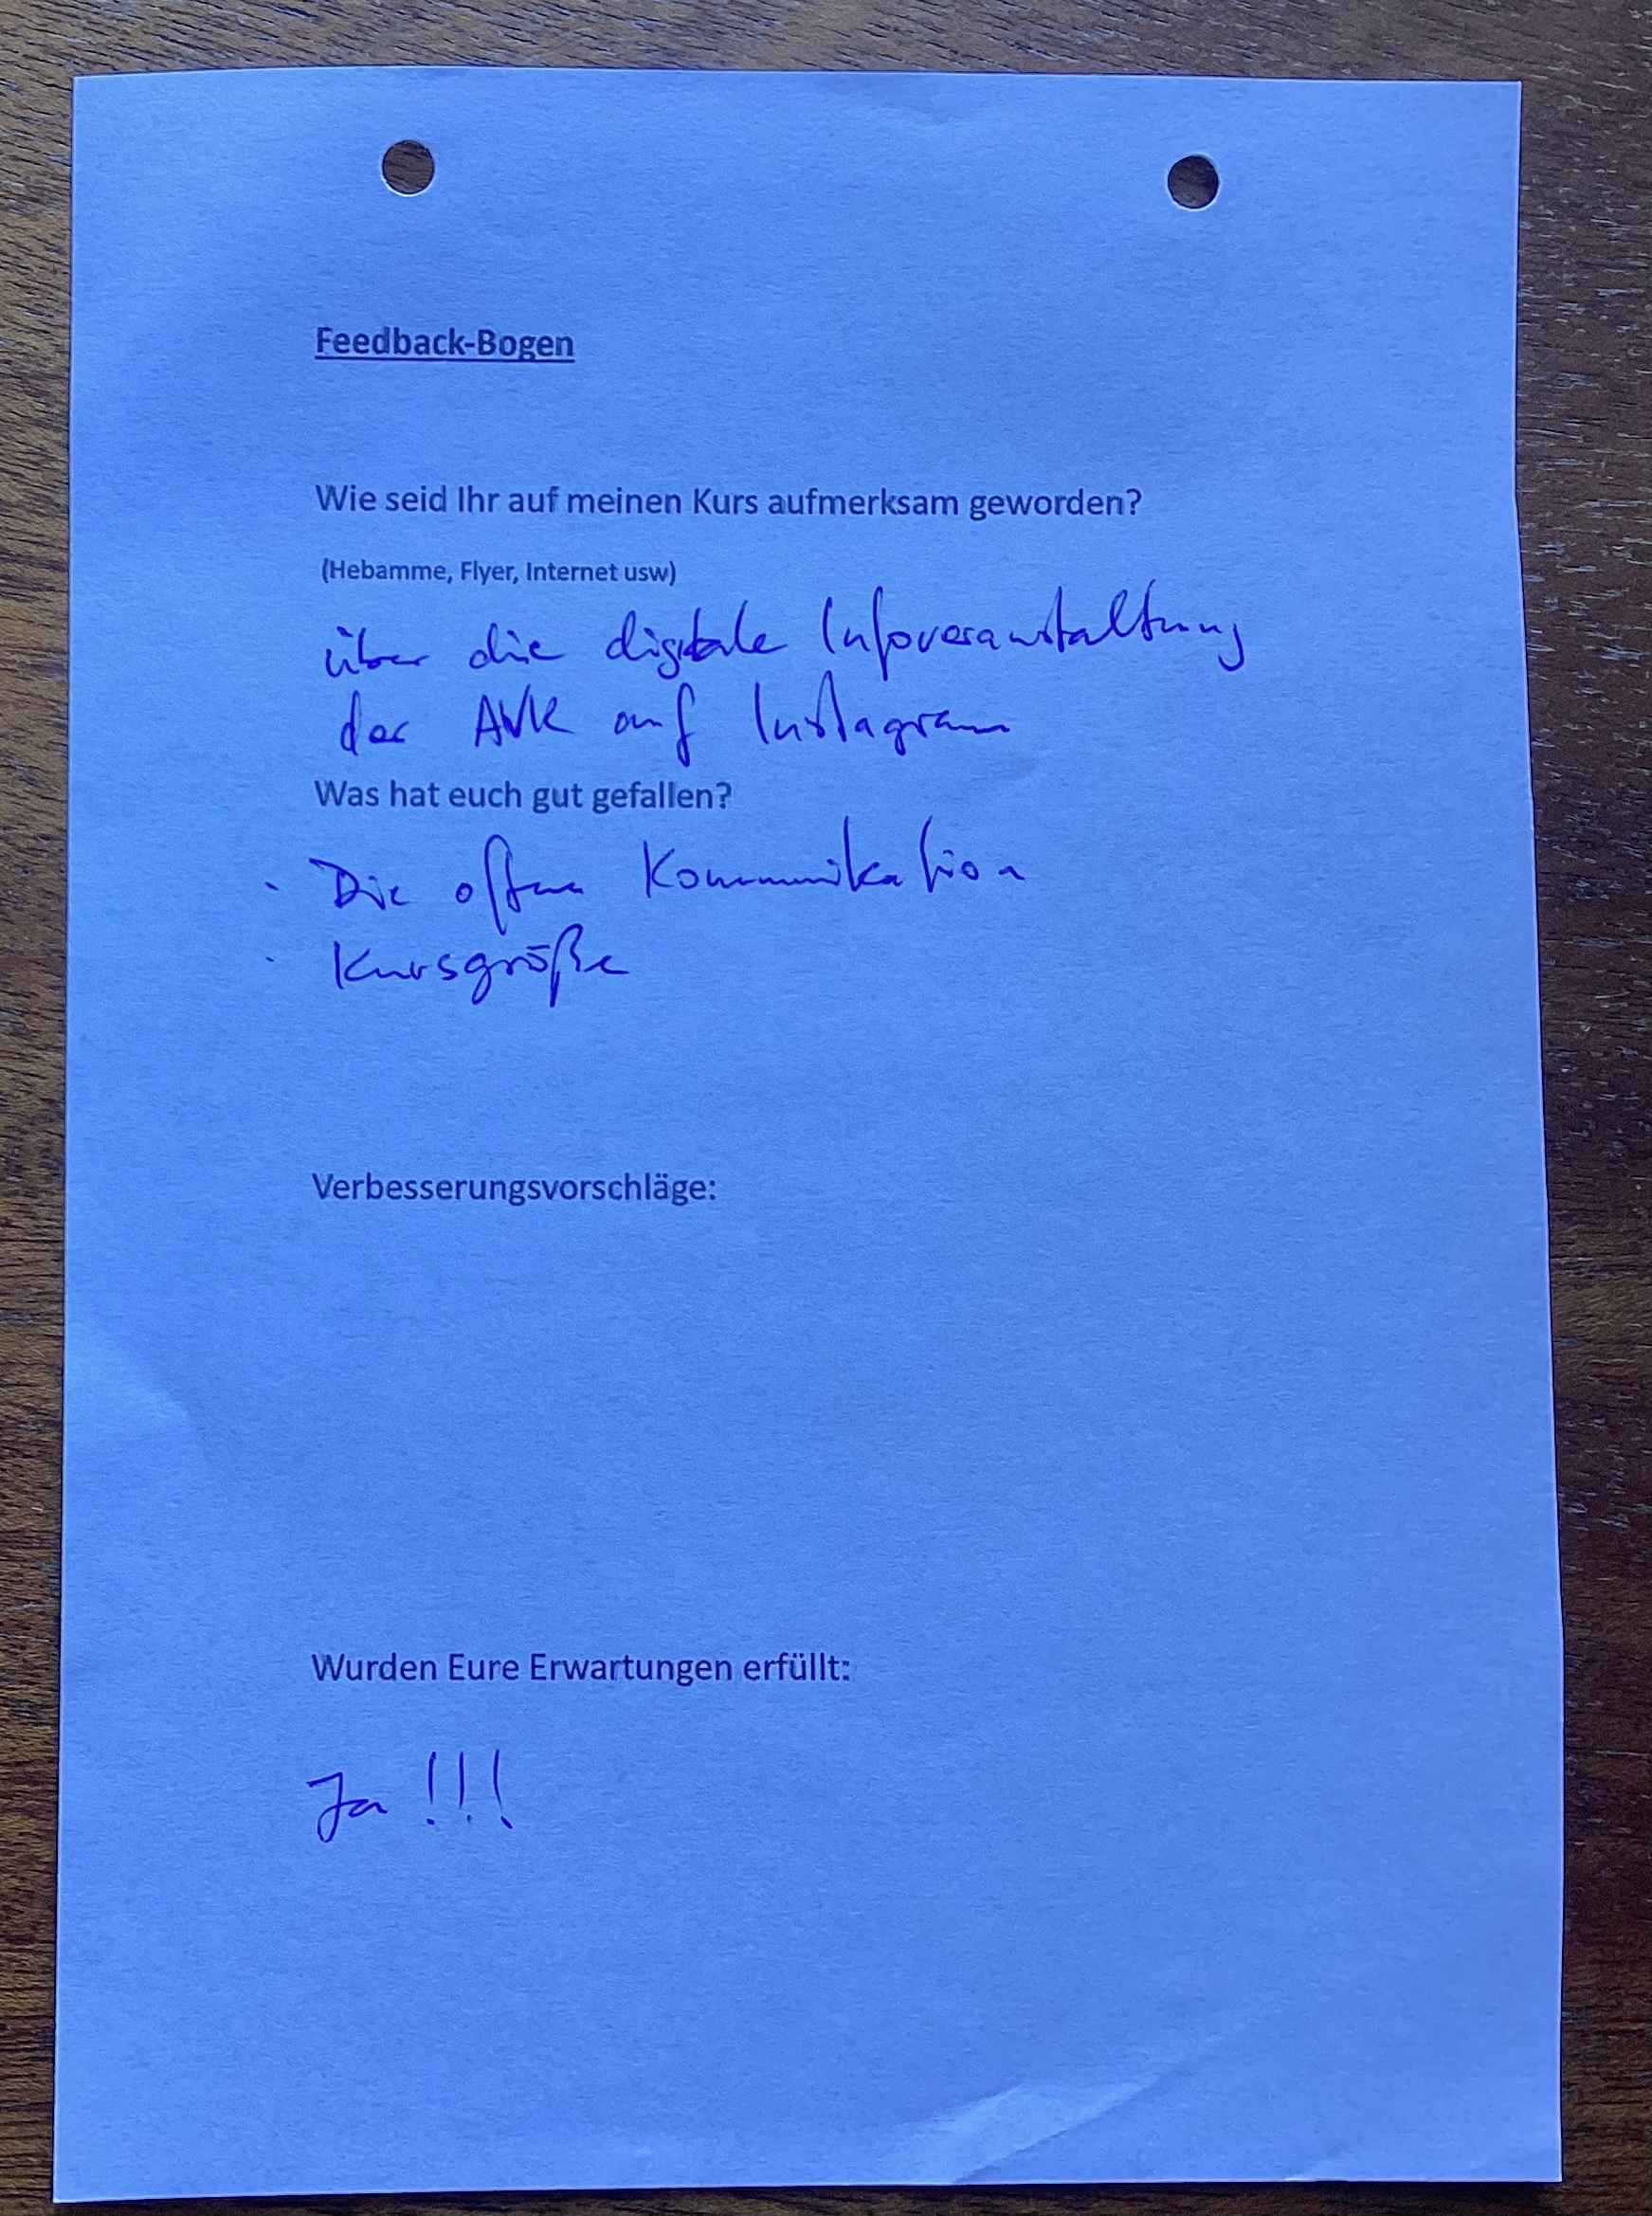 Feedback-Bogen
Wie seid Ihr auf meinen Kurs aufmerksam geworden?
(Hebamme, Flyer, Internet usw)
über die digitale Infoveranstaltung
der AVK auf Instagram
Was hat euch gut gefallen?
· Die offene Kommunikation
· Kursgröße
Verbesserungsvorschläge:
Wurden Eure Erwartungen erfüllt:
Ja !!!